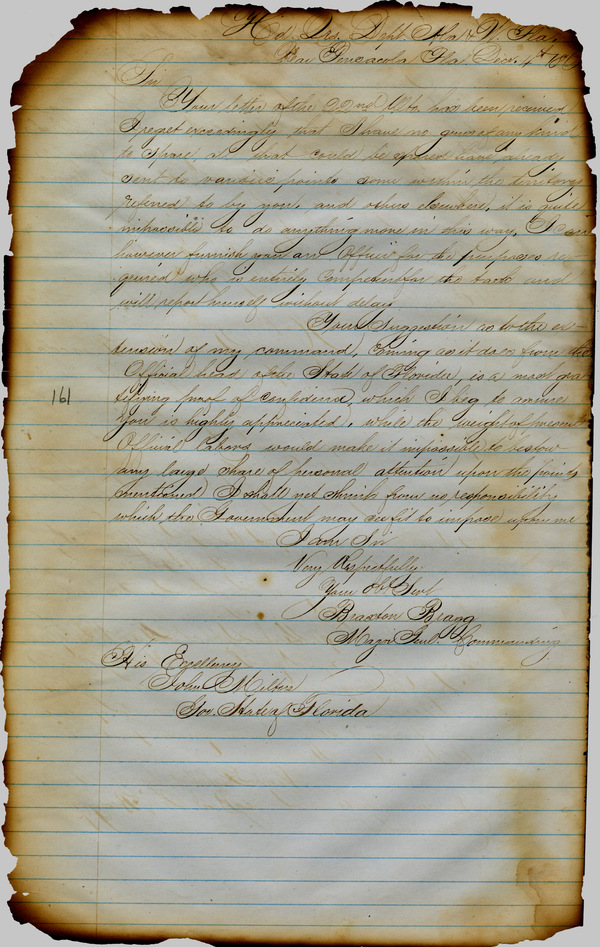 Hd. Qrs. Dept Ala & W. Fla.
Near Pensacola, Fla, Dec. 4th 186
Sir
Your letter of the 22nd Ulto has been received
I regret exceedingly that I have no guns of any kind
to spare, all that could be spared have already
sent to various points some within the territory
referred to by you, and others elsewhere, it is quite
impossible to do anything more in this way, I can
however furnish you an Officer for the purposes re-
quired who is entirely competent for the task and
will report himself without delay
Your Suggestion as to the ex-
tension of my command, Coming as it does from the
Official head of the State of Florida, is a most gra-
tifying proof of confidence, which I beg to assure
you is highly appreciated, while the weight of present
Official labors would make it impossible to bestow
any large share of personal attention upon the points
mentioned I shall not shrink from no responsibility
which the Government may see fit to impose upon me
161
I am Sir
Very Respectfully
Your Obt Servt
Braxton Bragg
Major Genl. Commanding
His Excellency
John Milton
Gov. State of Florida